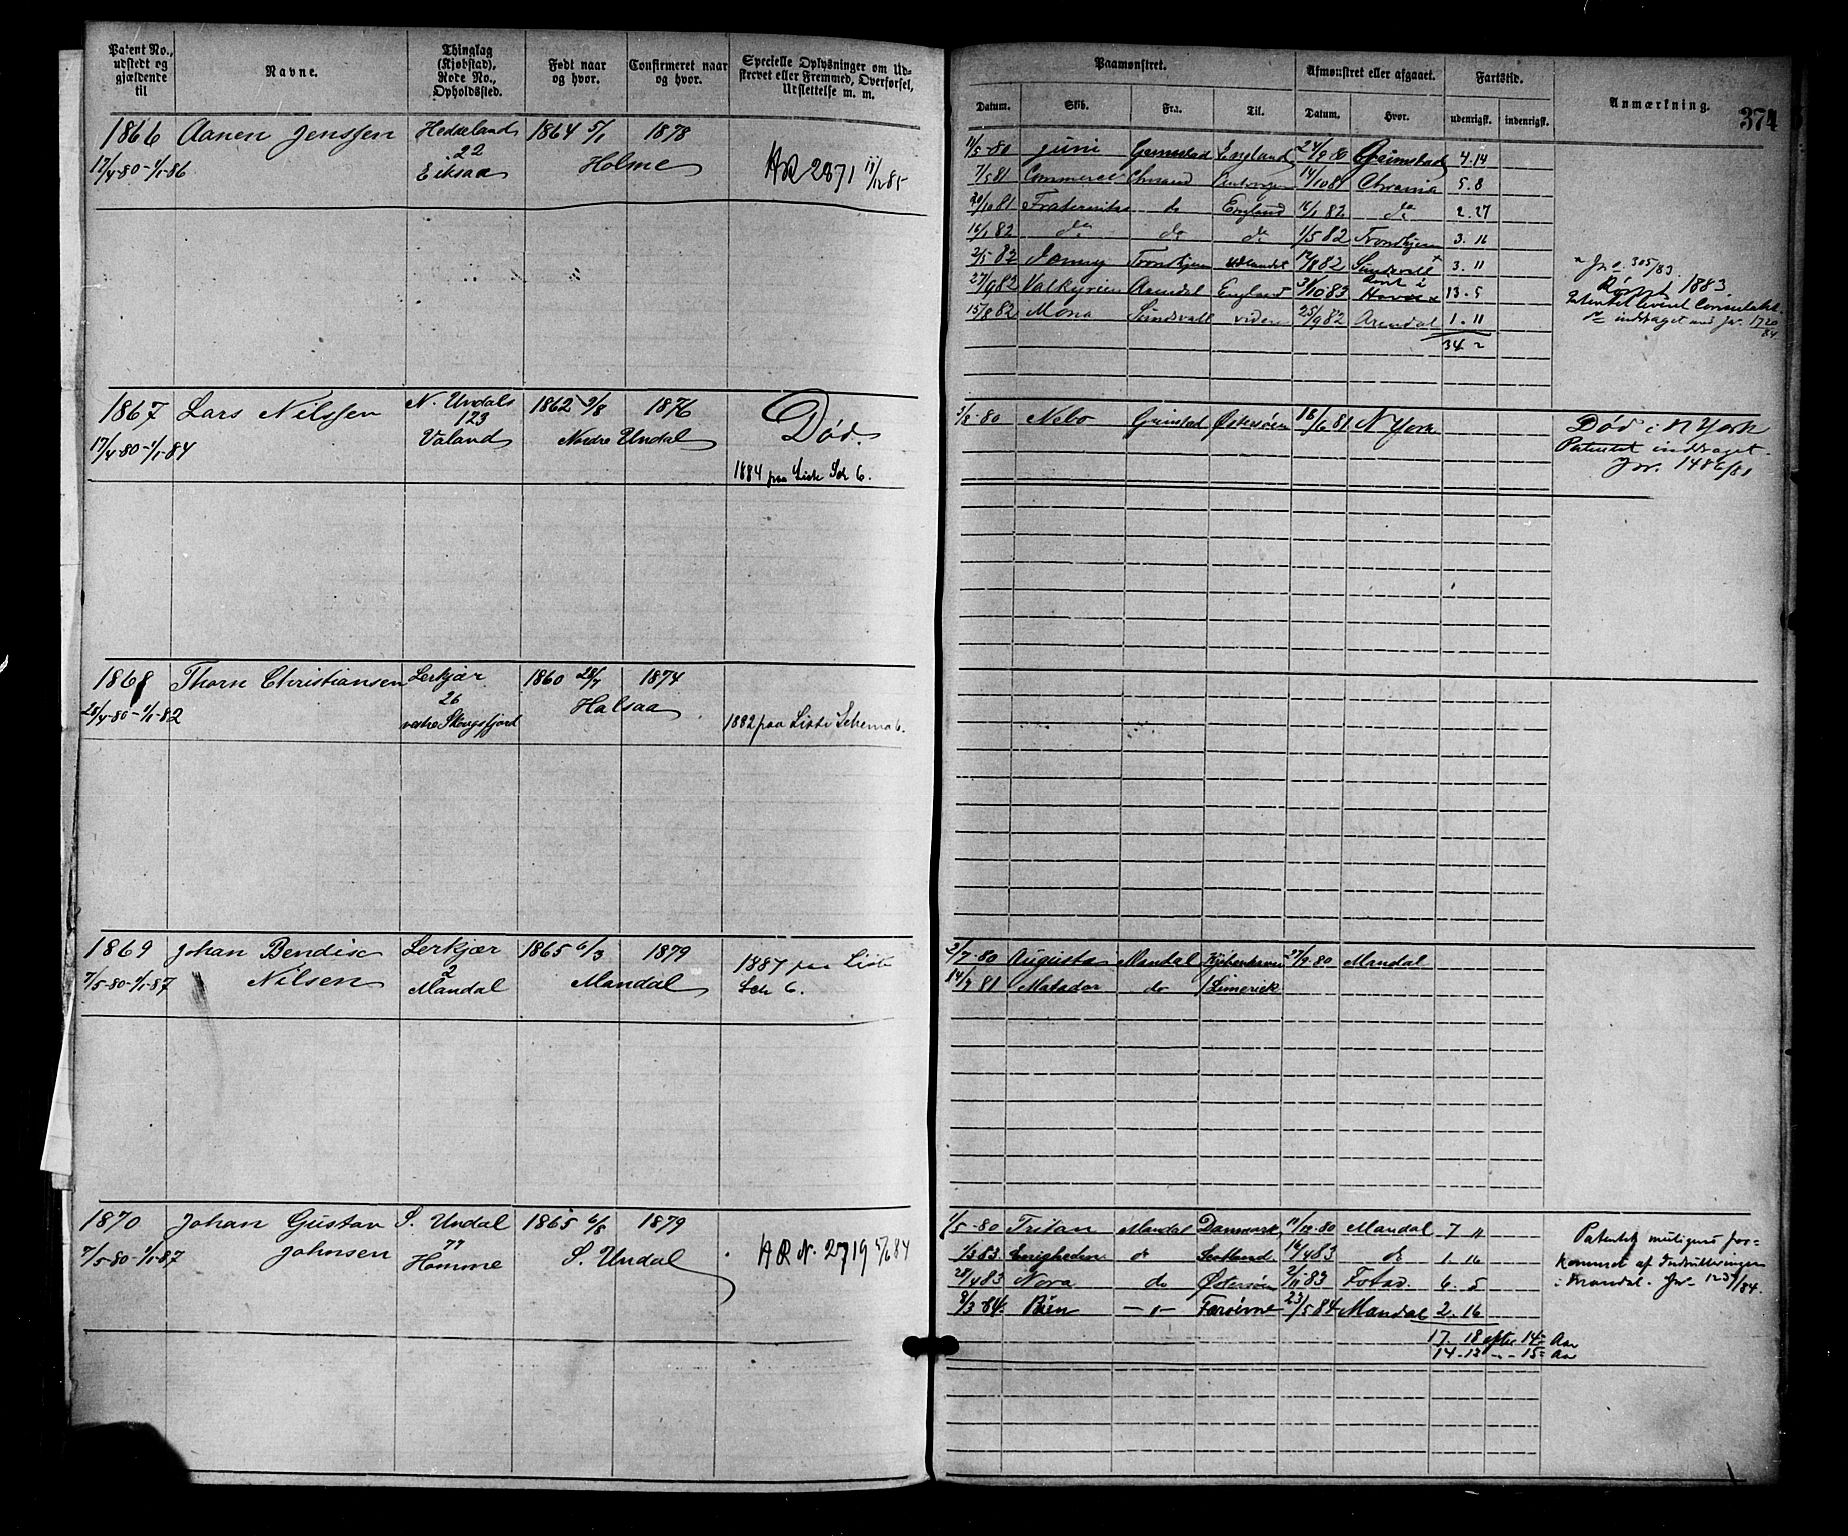 Patent No., udstedt og gjældende til
Navne.
Thinglag (Kjøbstad), Rode No., Opholdssted.
Født naar og hvor.
Confirmeret naar og hvor.
Specielle Oplysninger om Udskrevet eller Fremmed, Overførsel, Udslettelse m. m.
Paamønstret.
Afmønstret eller afgaaet.
Fartstid.
Anmærkning.
374
Datum. Skib. Fra. Til. Datum. Hvor. udenrigsk. indenrigsk.
1866 Aanen Jenssen
17/4-80-1/1-86
22
Eiksaa
1864 5/1 1878
Holme
AR 2871
1/5-80 Juni England Grimstad 4.14
7/5 81 14/10 81 5.8
20/10 81 Fraternitas do England 16/1 82 do 2.27
16/1 82 do do do 1/5 82 Trondhjem 3.16
2/5 82 Trondhjem udlandet 17/8 82 Sundsvall 3.11
27/9 82 Valkyrien Arendal England 31/10 83 13.5
15/8 82 Mona Sundsvall viden 25/9 82 Arendal 1.11
34 2
Jno 305/83
Rømt 1883
inddraget
1867 Lars Nilssen
17/4-80-1/1-84
N. Undals
123
Valand
1862 9/8 1876
Nordre Undal
Død.
1884 paa Liste Sch 6.
3/8-80 Nebo Grimstad Østersøen 18/6 81 N York
Død i N York
Patentet inddraget.
Jnr. 1486/81
1868 Thorn Christiansen
28/4-80-1/1-82
Lerkjær
26
vestre Skogsfjord
1860 28/7 1874
Halsaa
1882 paa Liste Schema 6.
1869 Johan Bendix
Nilsen
7/5-80-1/1-87
Lerkjær
2
Mandal
1865 6/3 1879
Mandal
1887 paa Liste
Sch 6.
2/7-80 Augusta Mandal Kjøbenhavn 27/9-80 Mandal
14/7 81 Matador do Limerick
1870 Johan Gustav
Johnsen
7/5-80-1/1-87
S. Undal
77
Homme
1865 6/8 1879
S. Undal
AR N. 2719 5/6 84
1/5-80 Tritan Mandal Danmark 11/12-80 Mandal 7 "
1/3 83 Enigheden do Scotland 16/4 83 do 1.16
28/4 83 Nora do Østersøen 2/11 83 6.5
8/3-84 -"- Færøerne 23/5 84 Mandal 2.16
17.18 efter 14 Aar
14-13 " - 15 Aar
Patentet muligens forkommet af Indrulleringen
i Mandal. Jnr. 1235/84.